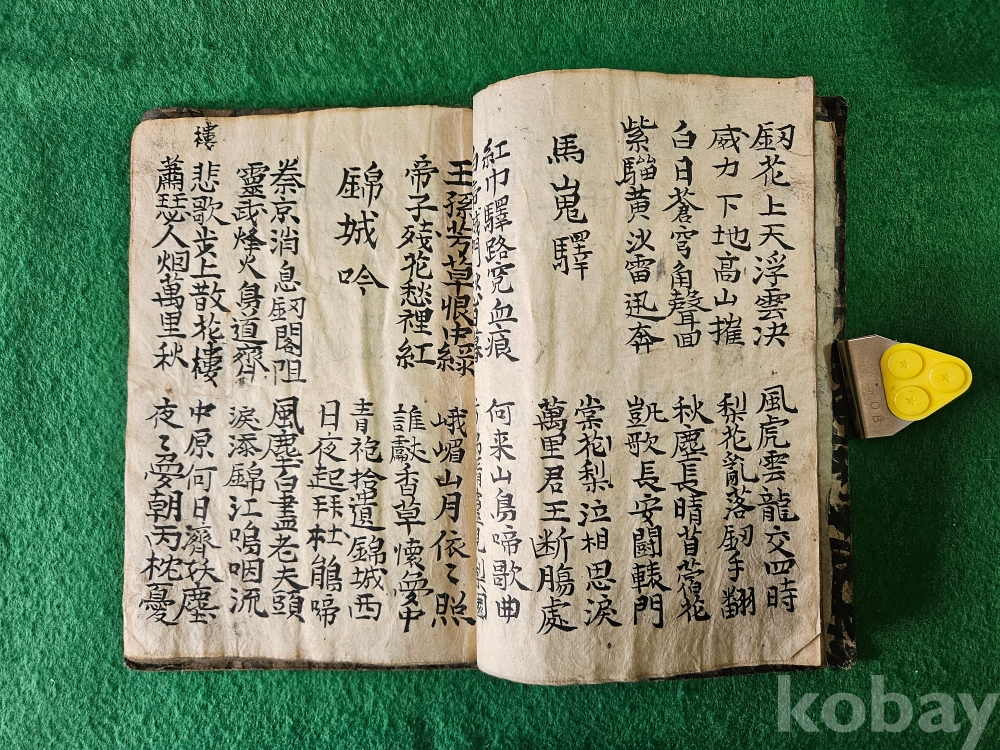 釼花上天浮雲决 風虎雲龍交四時
威力下地高山摧 梨花亂落釼手翻
白日蒼穹角聲面 秋塵長晴苜蓿花
紫騮黄沙雷迅奔 凱歌長安闘轅門
馬嵬驛 棠花梨泣相思淚
萬里君王断膓處
紅巾驛路寃血痕 何来山鳥啼歌曲
王孫芳草恨中綠 峨嵋山月依〻照
帝子殘花愁裡紅 誰獻香草懷夢中
錦城吟 青袍拾遺錦城西
日夜起拜杜鵑啼
秦京消息釼閣阻 風塵白盡老夫頭
靈武烽火道齊 淚添錦江嗚咽流
樓
悲歌步上散花樓 中原何日濟妖塵
蕭瑟人烟萬里秋 夜〻夢朝丙枕憂
kobay